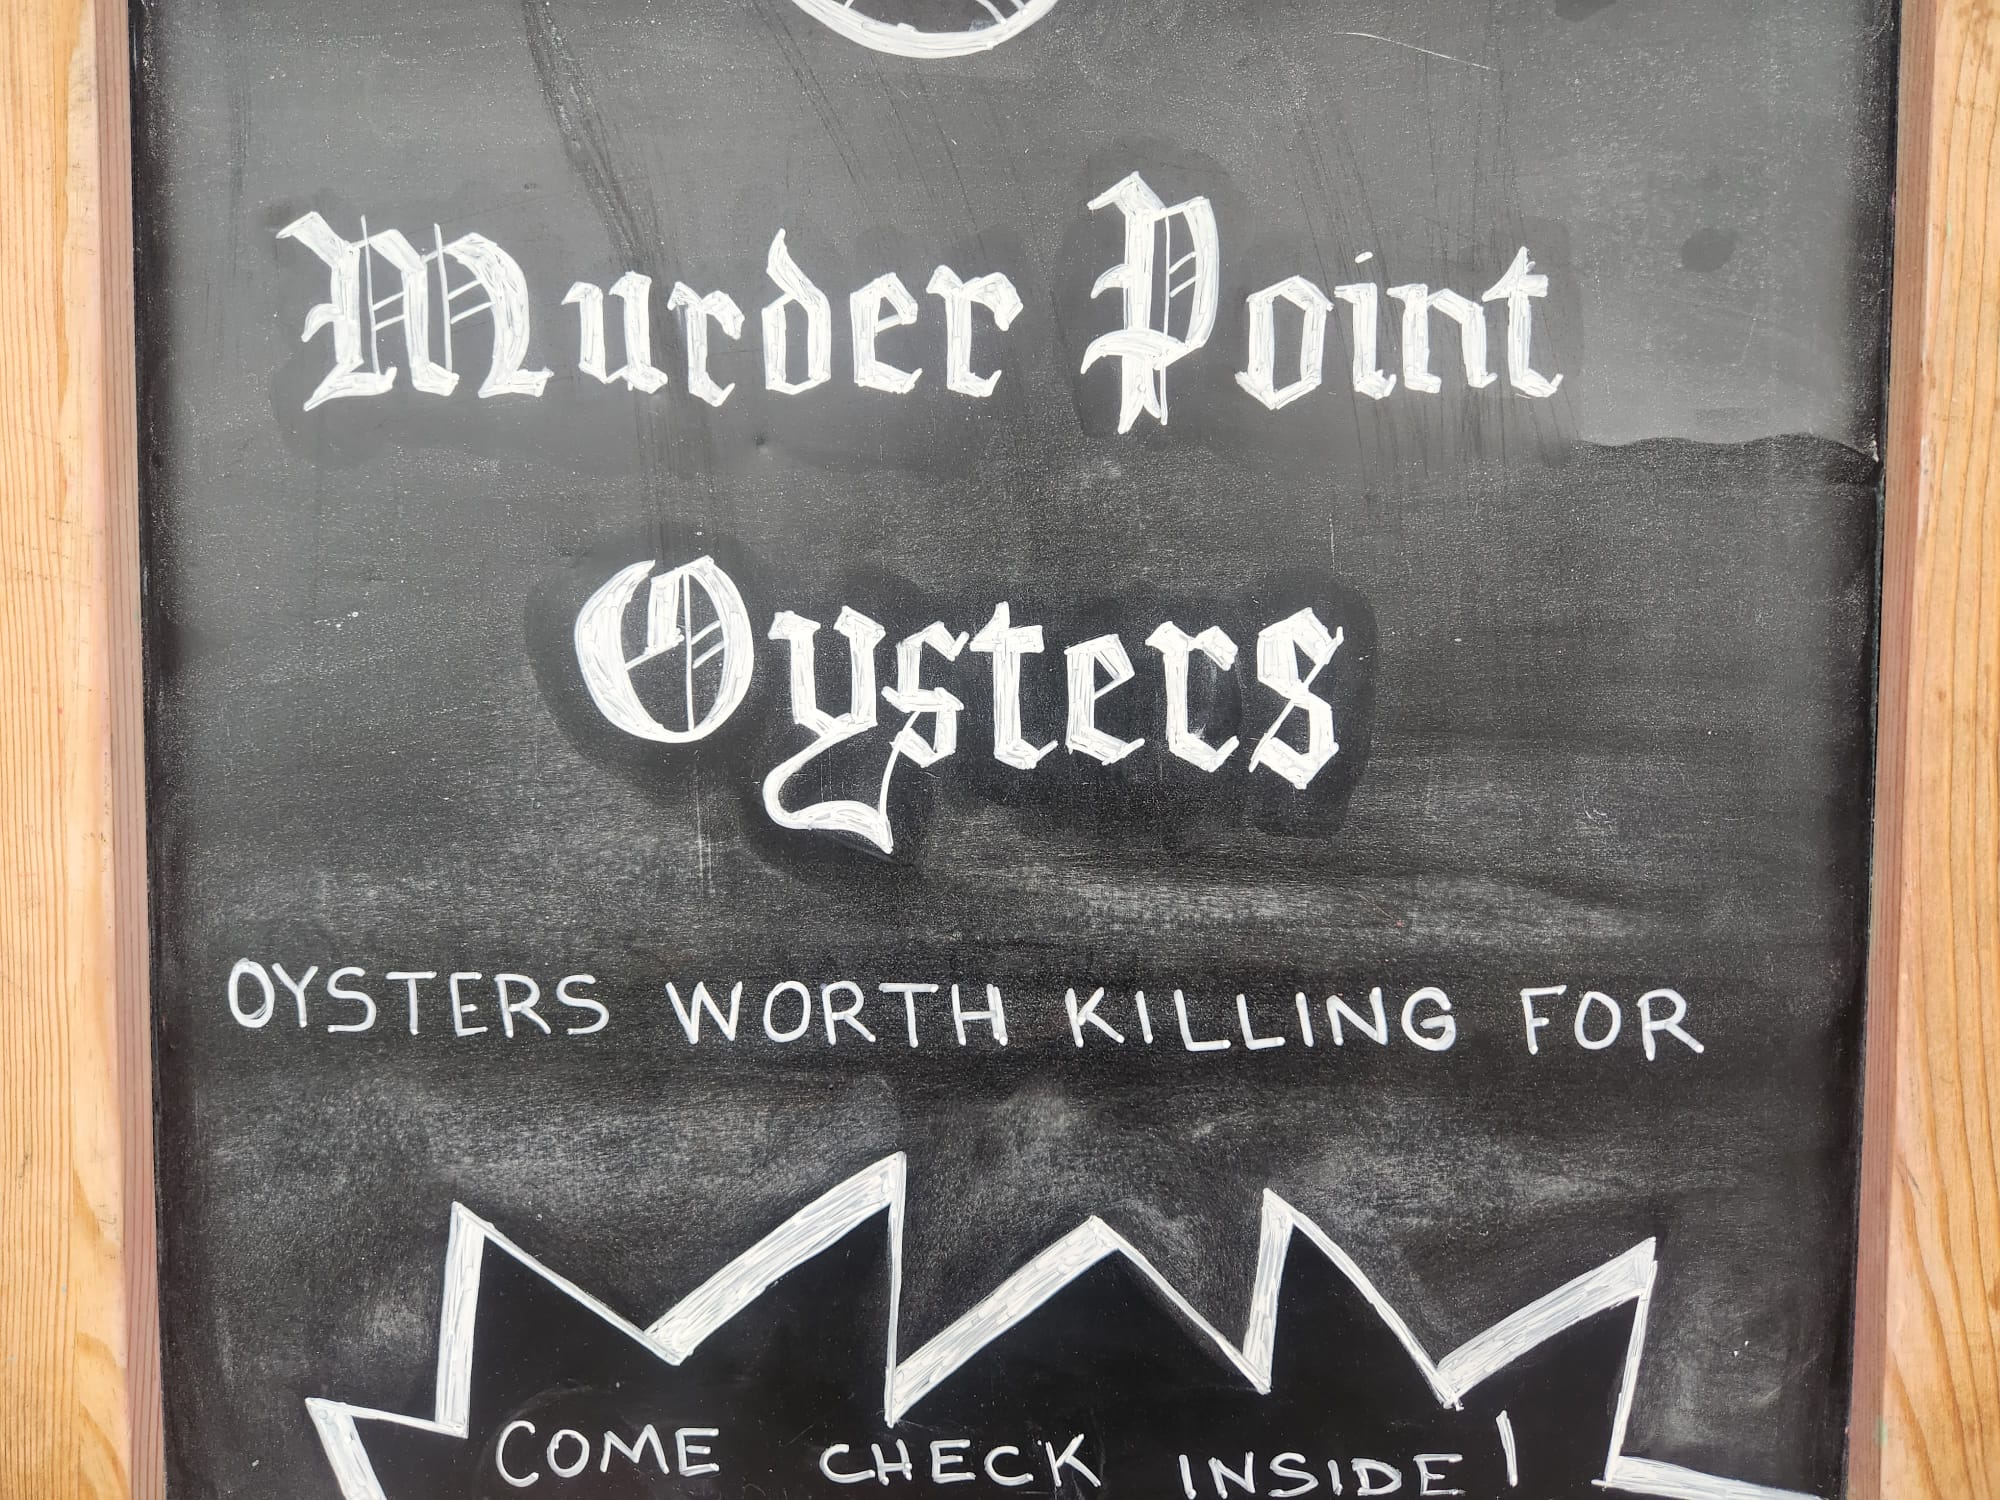 Murder Point
Oysters
OYSTERS WORTH KILLING FOR
COME CHECK INSIDE!